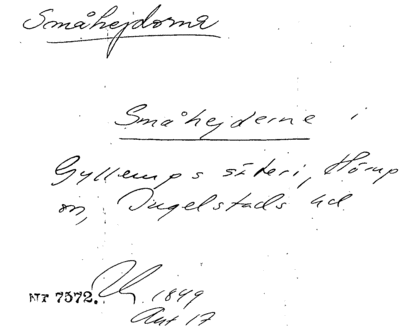 Småhejdorna
Småhejderne i
Gyllerups säteri, Hörup
sn, Ingelstads hd
Nr 7572. 1849
Akt 17